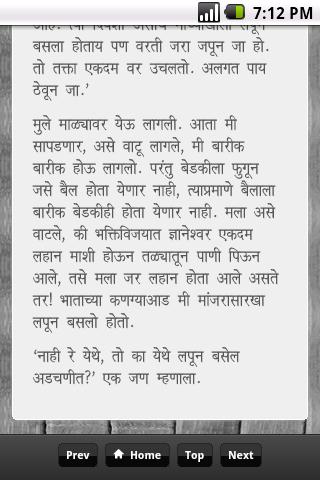 7:12 PM
बसला होताय पण वरती जरा जपून जा हो.
तो तक्ता एकदम वर उचलतो. अलगत पाय
ठेवून जा.’
मुले माळ्यावर येऊ लागली. आता मी
सापडणार, असे वाटू लागले, मी बारीक
बारीक होऊ लागलो. परंतु बेडकीला फुगून
जसे बैल होता येणार नाही, त्याप्रमाणे बैलाला
बारीक बेडकीही होता येणार नाही. मला असे
वाटले, की भक्तिविजयात ज्ञानेश्वर एकदम
लहान माशी होऊन तळ्यातून पाणी पिऊन
आले, तसे मला जर लहान होता आले असते
तर! भाताच्या कणग्याआड मी मांजरासारखा
लपून बसलो होतो.
‘नाही रे येथे, तो का येथे लपून बसेल
अडचणीत?’ एक जण म्हणाला.
Prev Home Top Next